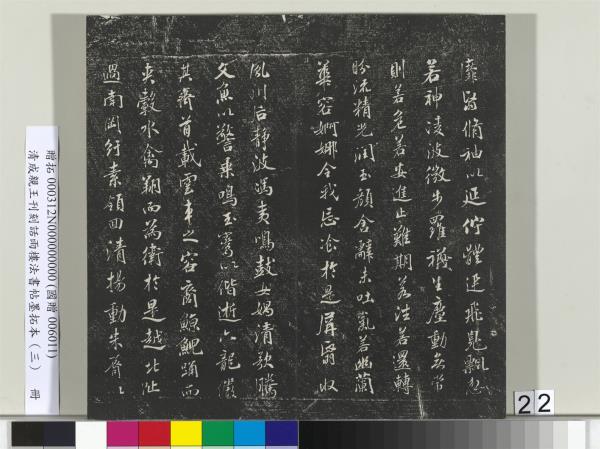 靡翳脩袖以延佇體迅飛鳧飄忽
若神淩波微步羅襪生塵動無常
則若危若安進止難期若往若還轉
盼流精光潤玉顏含辭未吐氣若幽蘭
華容婀娜令我忘飡於是屏翳收
風川后靜波馮夷鳴鼓女媧清歌騰
文魚以警乘鳴玉鸞以偕逝六龍儼
其齊首載雲車之容裔鯨鯢踴而
夾轂水禽翔而為衛於是越北沚
過南岡紆素領迴清揚動朱脣
贈拓 000312N000000000 (國贈 006011)
清成親王刊刻詒晉樓法書帖墨拓本（三） 冊
22